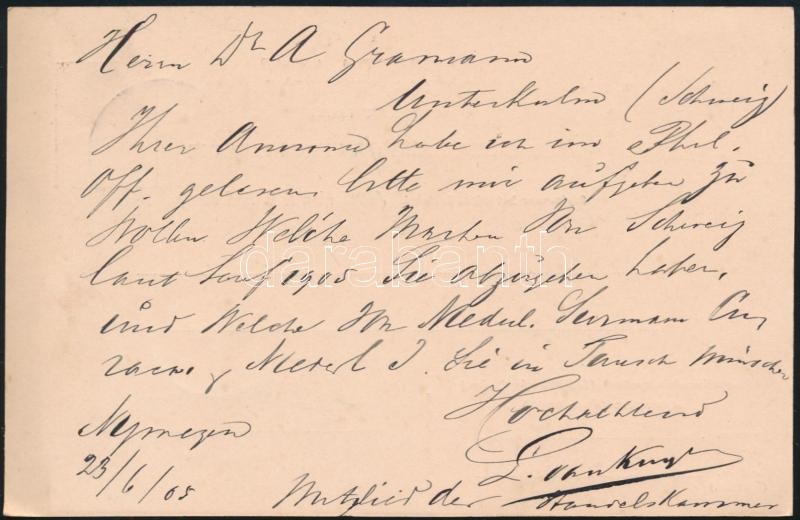 Herrn Dr A Gramann
Unterkulm (Schweiz)
Ihrer Annonce habe ich im Phil.
Off. gelesen bitte mir aufgeben zu
Wollen Welche Marken Von Schweiz
laut 1905 Sie abzugeben haben,
und Welche Von Niederl. Surinam Cu
racao, Niederl I. Sie in Tausch wünschen
Hochachtend
Nymegen
23/6/05
Mitglied der Handelskammer
darabanth.com